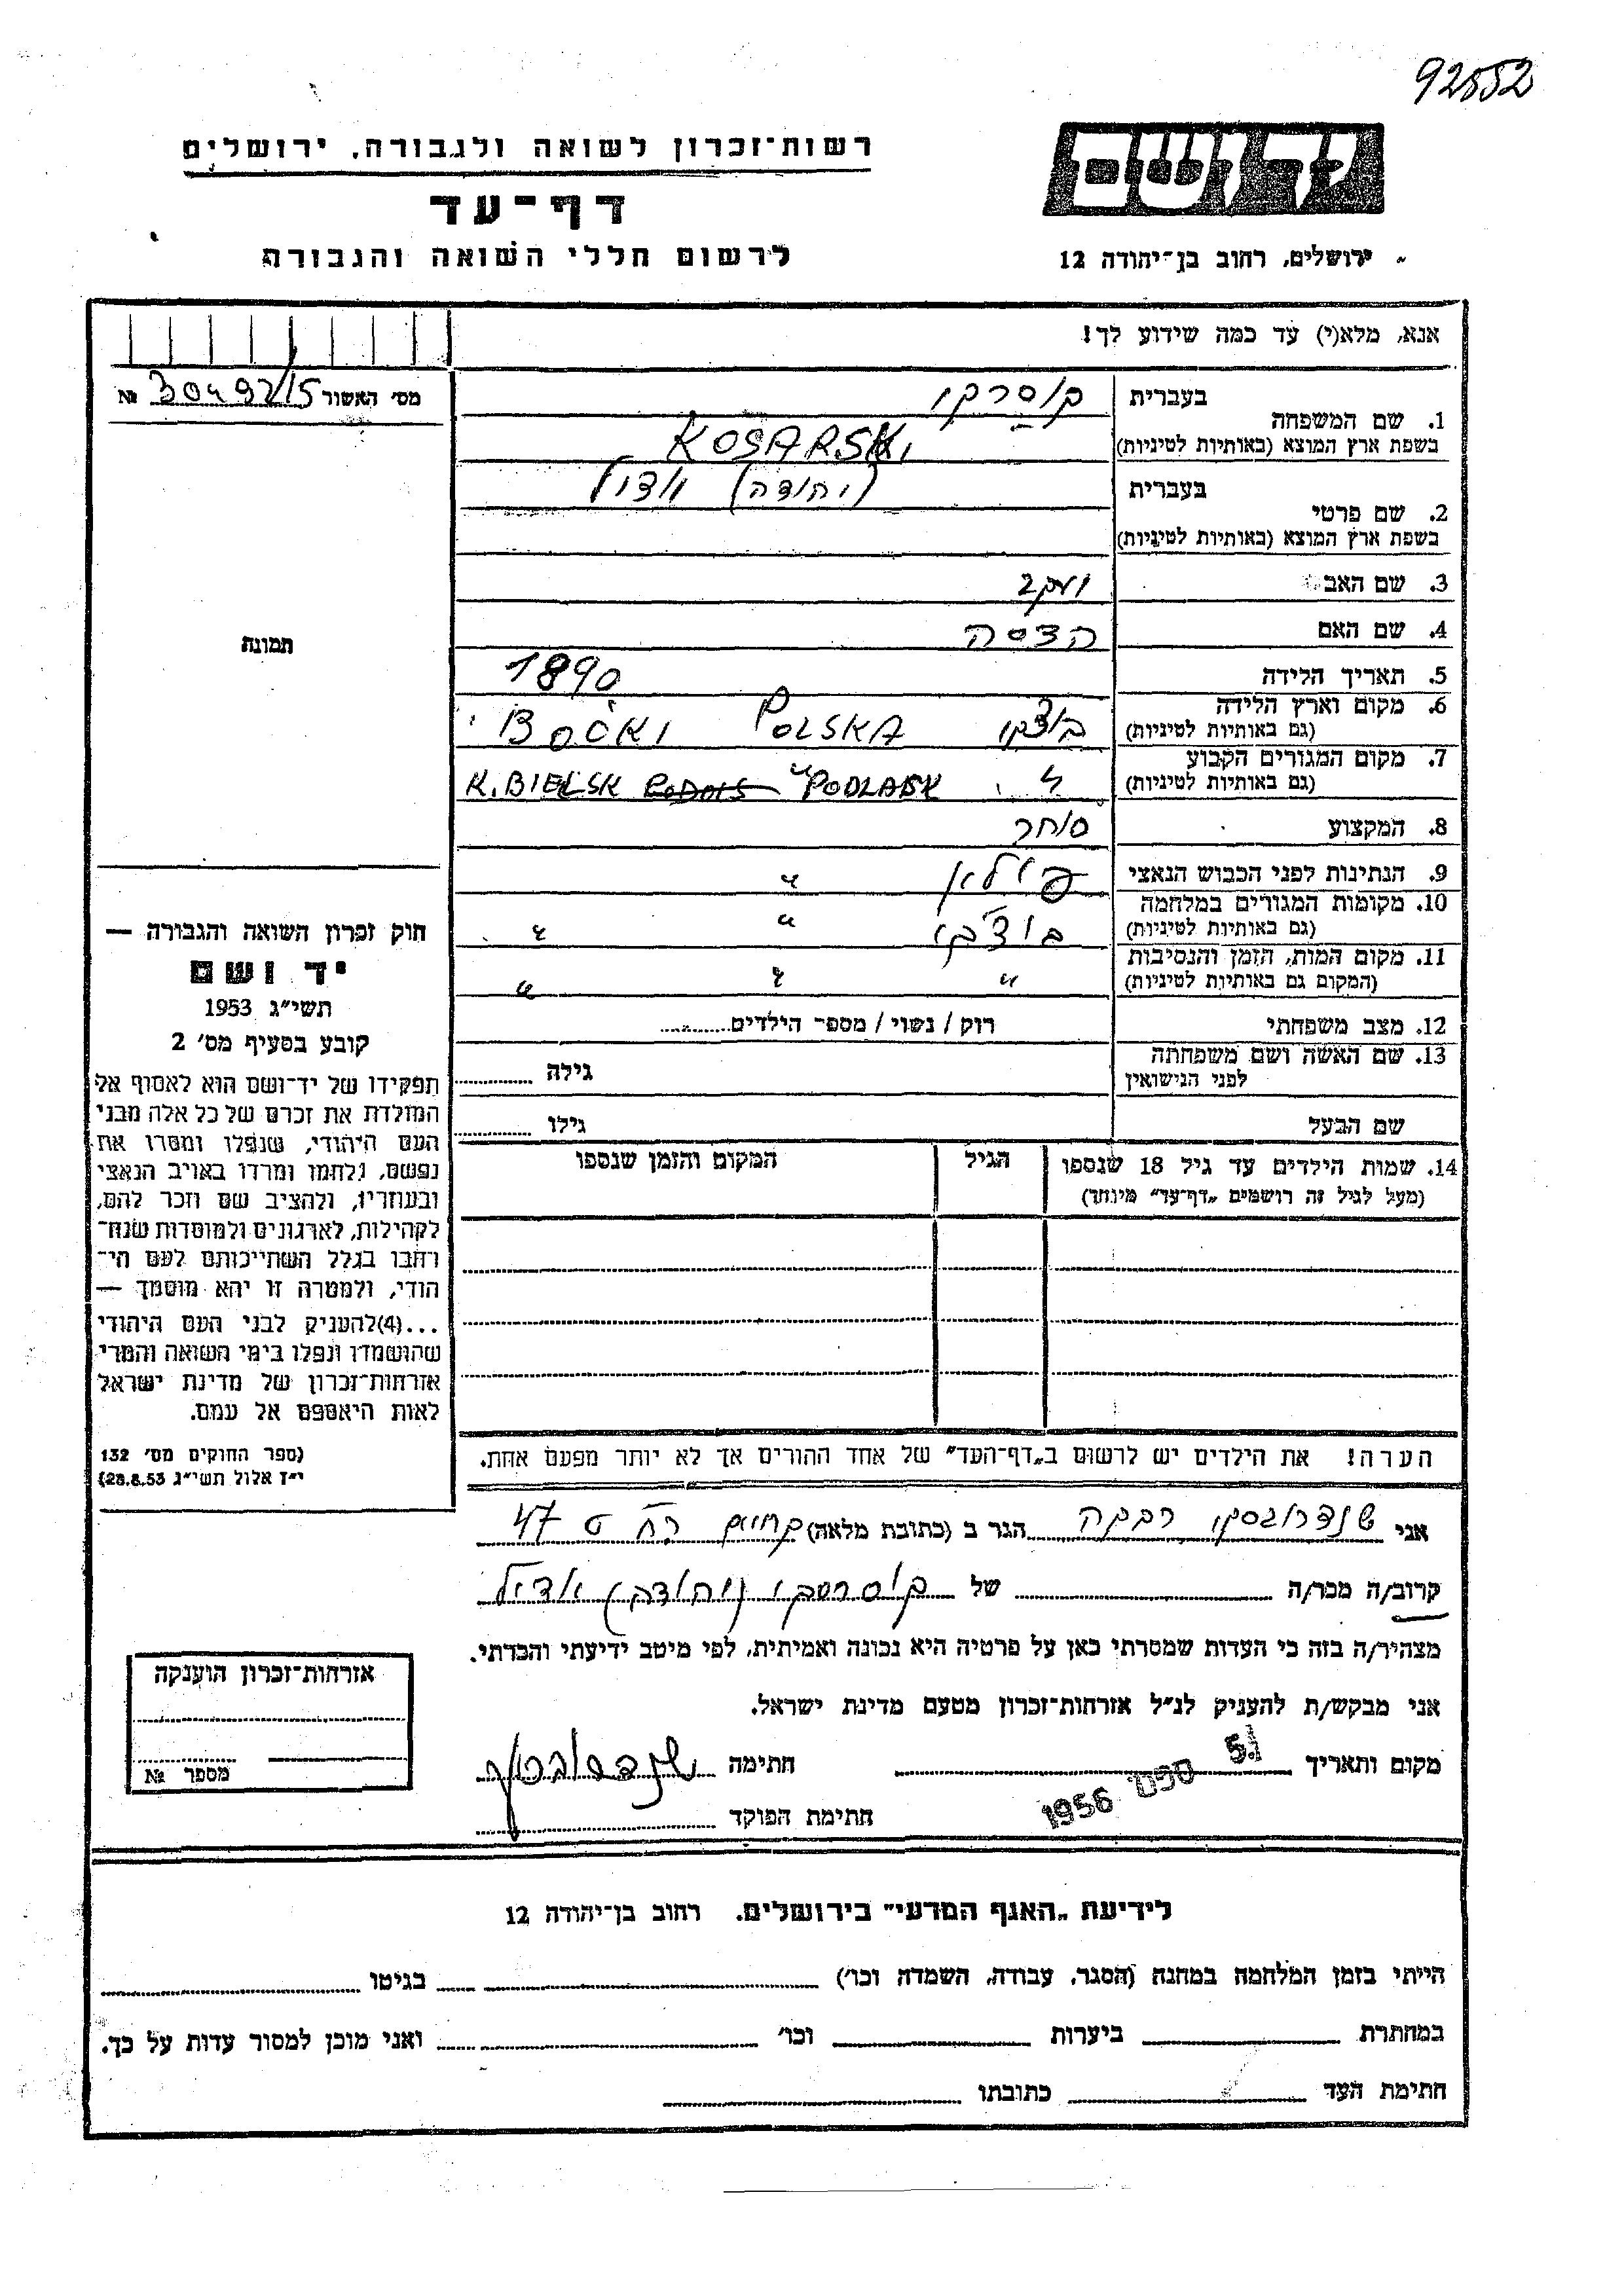 92552
רשות־זכרון לשואה ולגבורה, ירושלים
דף־עד
לרשום חללי השואה והגבורה
יד ושם
ירושלים, רחוב בן־יהודה 12
אנא, מלא(י) עד כמה שידוע לך!
מס׳ האשור 30492/15 №
תמונה
1. שם המשפחה
בעברית קוסרקי
בשפת ארץ המוצא (באותיות לטיניות) KOSARSKI
2. שם פרטי
בעברית (יהודה)
בשפת ארץ המוצא (באותיות לטיניות)
3. שם האב יעקב
4. שם האם הדסה
5. תאריך הלידה 1890
6. מקום וארץ הלידה (גם באותיות לטיניות) בוצקי POLSKA BOĆKI
7. מקום המגורים הקבוע (גם באותיות לטיניות) " K. BIELSK PODLASK
8. המקצוע סוחר
9. הנתינות לפני הכבוש הנאצי פולין "
10. מקומות המגורים במלחמה (גם באותיות לטיניות) בוצקי " "
11. מקום המות, הזמן והנסיבות (המקום גם באותיות לטיניות) " " "
12. מצב משפחתי רוק / נשוי / מספר הילדים
13. שם האשה ושם משפחתה לפני הנישואין גילה
שם הבעל גילו
14. שמות הילדים עד גיל 18 שנספו (מעל לגיל זה רושמים „דף־עד״ מיוחד) הגיל המקום והזמן שנספו
הערה! את הילדים יש לרשום ב„דף־העד״ של אחד ההורים אך לא יותר מפעם אחת.
חוק זכרון השואה והגבורה —
יד ושם
תשי״ג 1953
קובע בסעיף מס׳ 2
תפקידו של יד־ושם הוא לאסוף אל
המולדת את זכרם של כל אלה מבני
העם היהודי, שנפלו ומסרו את
נפשם, נלחמו ומרדו באויב הנאצי
ובעוזריו, ולהציב שם וזכר להם,
לקהילות, לארגונים ולמוסדות שנח־
רבו בגלל השתייכותם לעם הי־
הודי, ולמטרה זו יהא מוסמך —
...(4) להעניק לבני העם היהודי
שהושמדו ונפלו בימי השואה והמרי
אזרחות־זכרון של מדינת ישראל
לאות היאספם אל עמם.
(ספר החוקים מס׳ 132
י״ז אלול תשי״ג 28.8.53)
אני שנדרובסקי רבקה הגר ב (כתובת מלאה) 47
קרוב/ה מכר/ה של קוסרסקי (יהודה)
מצהיר/ה בזה כי העדות שמסרתי כאן על פרטיה היא נכונה ואמיתית, לפי מיטב ידיעתי והכרתי.
אני מבקש/ת להעניק לנ״ל אזרחות־זכרון מטעם מדינת ישראל.
מקום ותאריך 5. ספט 1956 חתימה
חתימת הפוקד
אזרחות־זכרון הוענקה
מספר №
לידיעת „האגף המדעי״ בירושלים. רחוב בן־יהודה 12
הייתי בזמן המלחמה במחנה (הסגר, עבודה, השמדה וכו׳) בגיטו
במחתרת ביערות וכו׳ ואני מוכן למסור עדות על כך.
חתימת העד כתובתו